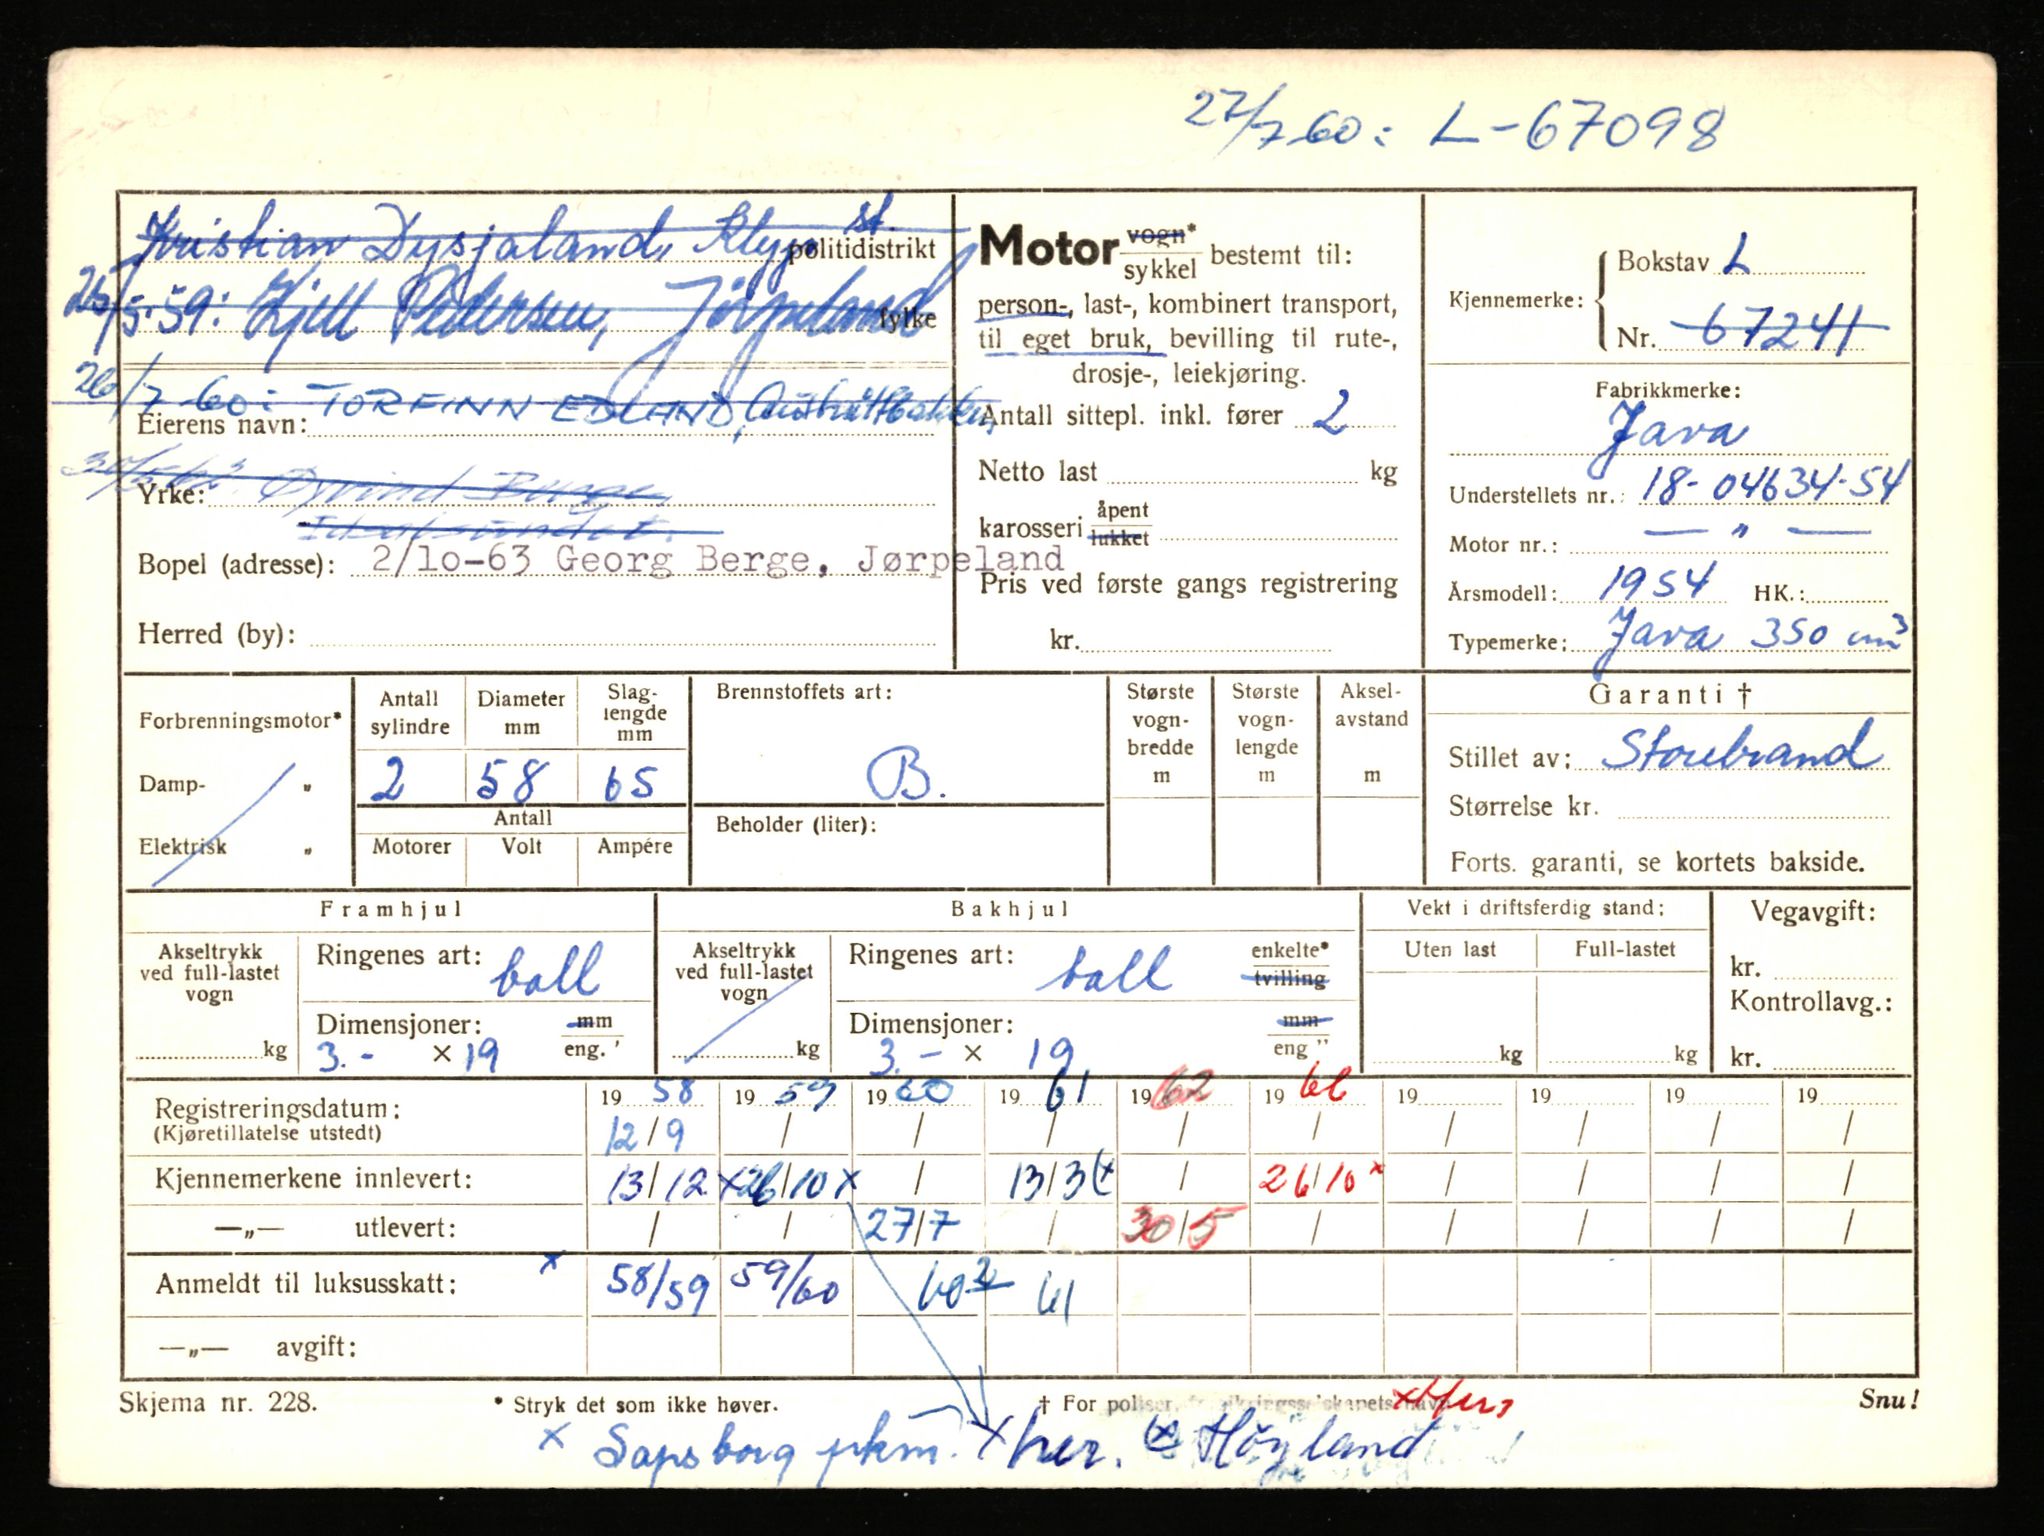 27/7 60: L-67098
Kristian Dysjaland, Klepp st. politidistrikt
25/5-59: Kjell Pedersen, Jørpeland fylke
26/7-60: TORFINN EDLAND, Austråttbakken,
Eierens navn:
30/5-62: Øyvind Berge,
Yrke:
Idsalsundet.
Bopel (adresse): 2/10-63 Georg Berge, Jørpeland
Herred (by):
Motor vogn* / sykkel bestemt til:
person-, last-, kombinert transport,
til eget bruk, bevilling til rute-,
drosje-, leiekjøring.
Antall sittepl. inkl. fører 2
Netto last kg
karosseri åpent / lukket
Pris ved første gangs registrering
kr.
Kjennemerke: Bokstav L
Nr. 67241
Fabrikkmerke:
Java
Understellets nr.: 18-04634-54
Motor nr.: — " —
Årsmodell: 1954 HK.:
Typemerke: Java 350 cm3
Forbrenningsmotor*
Damp- "
Elektrisk "
Antall sylindre 2
Diameter mm 58
Slag-lengde mm 65
Antall
Motorer Volt Ampére
Brennstoffets art:
B.
Beholder (liter):
Største vogn-bredde m
Største vogn-lengde m
Aksel-avstand m
Garanti †
Stillet av: Storebrand
Størrelse kr.
Forts. garanti, se kortets bakside.
Framhjul
Akseltrykk ved full-lastet vogn kg
Ringenes art: ball
Dimensjoner: mm / eng. '
3.- × 19
Bakhjul
Akseltrykk ved full-lastet vogn kg
Ringenes art: ball enkelte* / tvilling
Dimensjoner: mm / eng "
3.- × 19
Vekt i driftsferdig stand:
Uten last Full-lastet
kg kg
Vegavgift:
kr.
Kontrollavg.:
kr.
19 58 19 59 19 60 19 61 19 62 19 66 19 19 19 19
Registreringsdatum: 12/9 / / / / / / / / /
(Kjøretillatelse utstedt)
Kjennemerkene innlevert: 13/12 x 26/10 x / 13/3 (x / 26/10 x / / / /
—„— utlevert: / / 27/7 / 30/5 / / / / /
Anmeldt til luksusskatt: x 58/59 59/60 60 2 61
—„— avgift:
Skjema nr. 228. * Stryk det som ikke høver. † For poliser, Snu!
x Sapsborg pkm. x her. (x Höyland